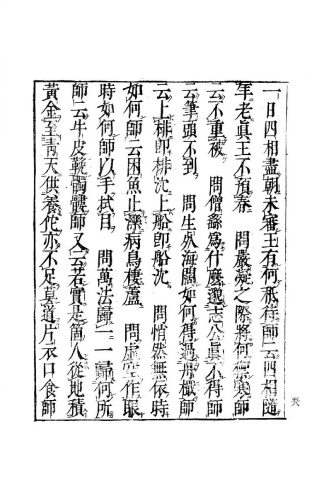 一日四相盡朝未審王有何祗待師云四相隨
年老真王不預春　問嚴凝之際將何禦寒師
云不重被　問僧繇為什麼邈志公真不得師
云筆頭不到　問生死海闊如何得過舟檝師
云上排即排沈上船即船沈　問悄然無依時
如何師云困魚止濼病鳥棲蘆　問虛空作眼
時如何師以手拭目　問萬法歸一一歸何所
師云牛皮鞔髑髏師又云若實是箇人從地積
黃金至青天供養佗亦不足莫道片衣口食師